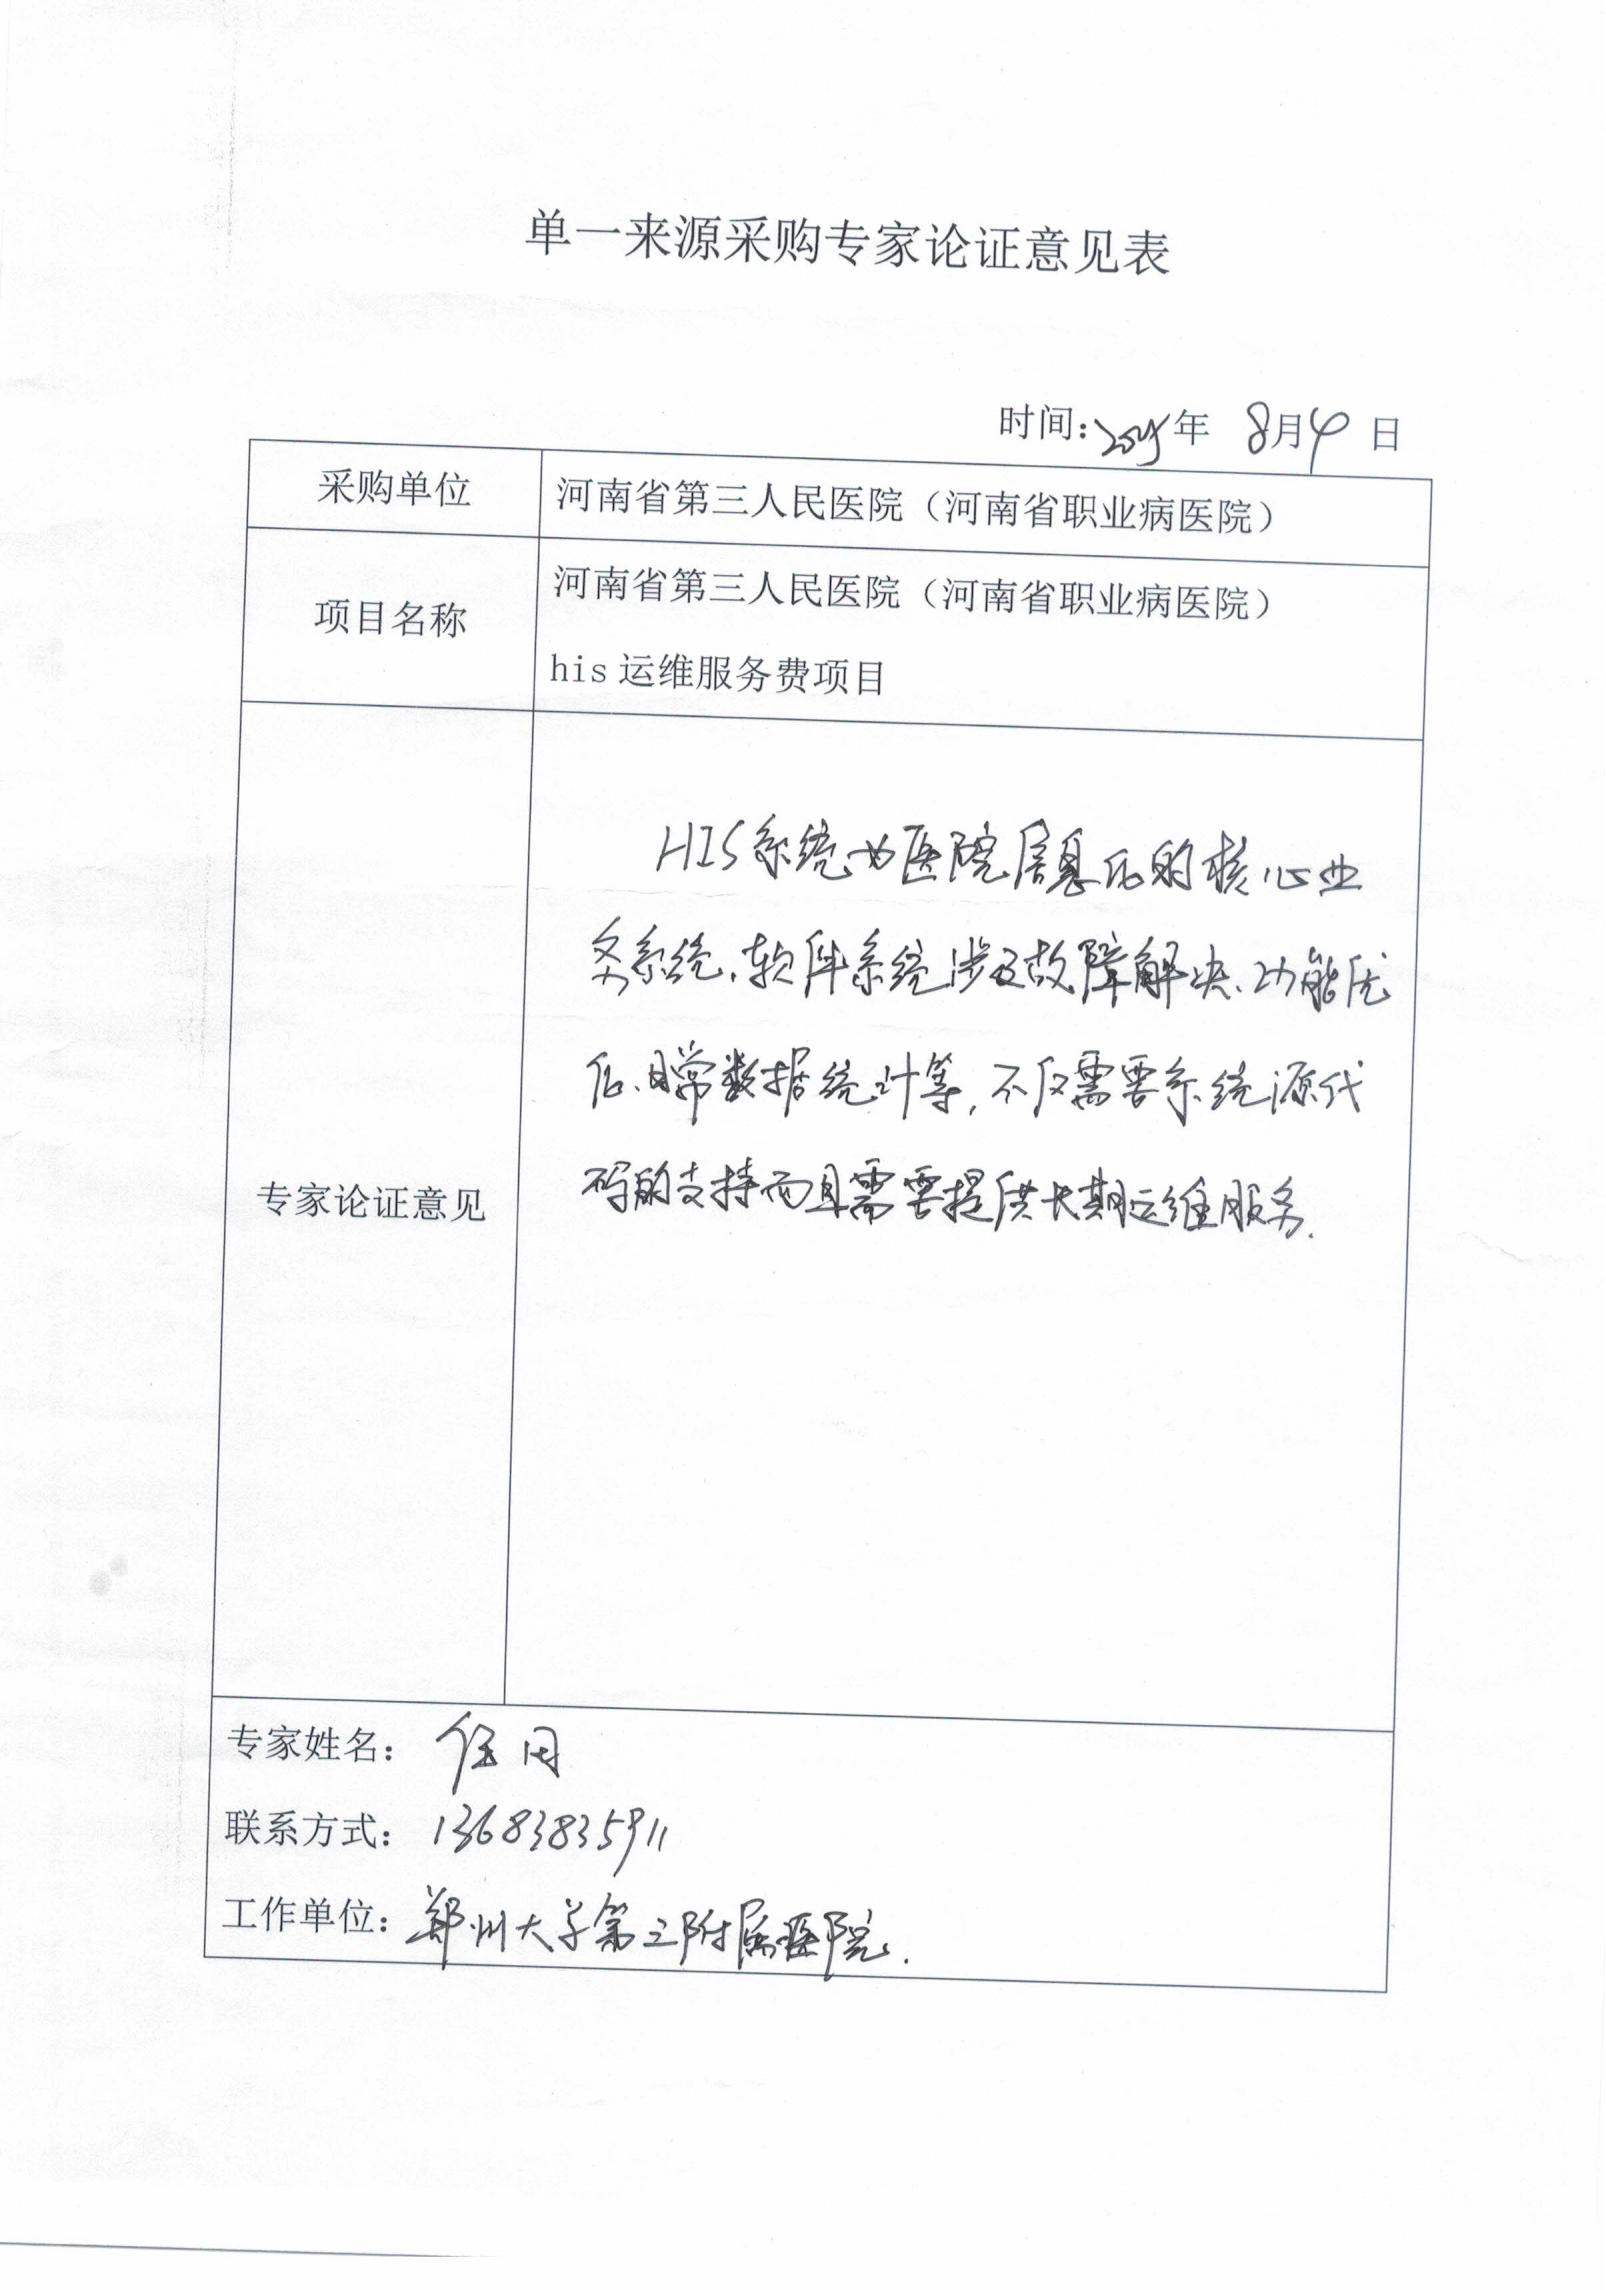 单一来源采购专家论证意见表
时间：2025年 8月4日
采购单位
河南省第三人民医院（河南省职业病医院）
项目名称
河南省第三人民医院（河南省职业病医院）
his 运维服务费项目
专家论证意见
HIS系统为医院信息化的核心业
务系统、软件系统涉及故障解决、功能优
化、日常数据统计等，不仅需要系统源代
码的支持而且需要提供长期运维服务.
专家姓名：任同
联系方式：13683835911
工作单位：郑州大学第三附属医院.